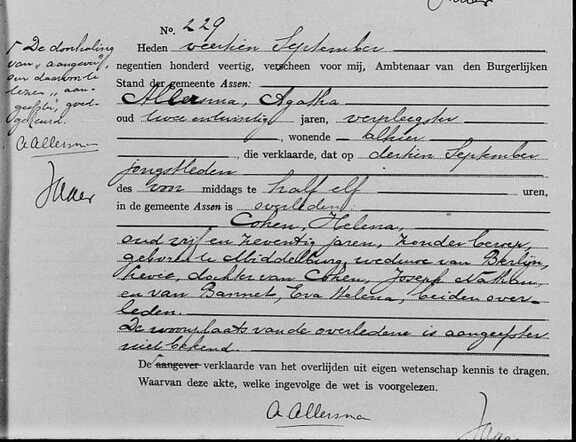 No. 229
Heden veertien September
negentien honderd veertig, verscheen voor mij, Ambtenaar van den Burgerlijken
Stand der gemeente Assen:
Allersma, Agatha
oud twee en twintig jaren, verpleegster
, wonende alhier
, die verklaarde, dat op dertien September
jongstleden
des voor middags te half elf uren,
in de gemeente Assen is overleden:
Cohen, Helena,
oud vijf en zeventig jaren, zonder beroep,
geboren te Middelburg, weduwe van Berlijn,
Levie, dochter van Cohen, Joseph Nathan,
en van Bannet, Eva Helena, beiden over-
leden.
De woonplaats van de overledene is aangeefster
niet bekend.
De aangever verklaarde van het overlijden uit eigen wetenschap kennis te dragen.
Waarvan deze akte, welke ingevolge de wet is voorgelezen.
A Allersma
De doorhaling
van "aangever"
en daarvoor te
lezen "aan-
geefster", goed-
gekeurd.
A Allersma